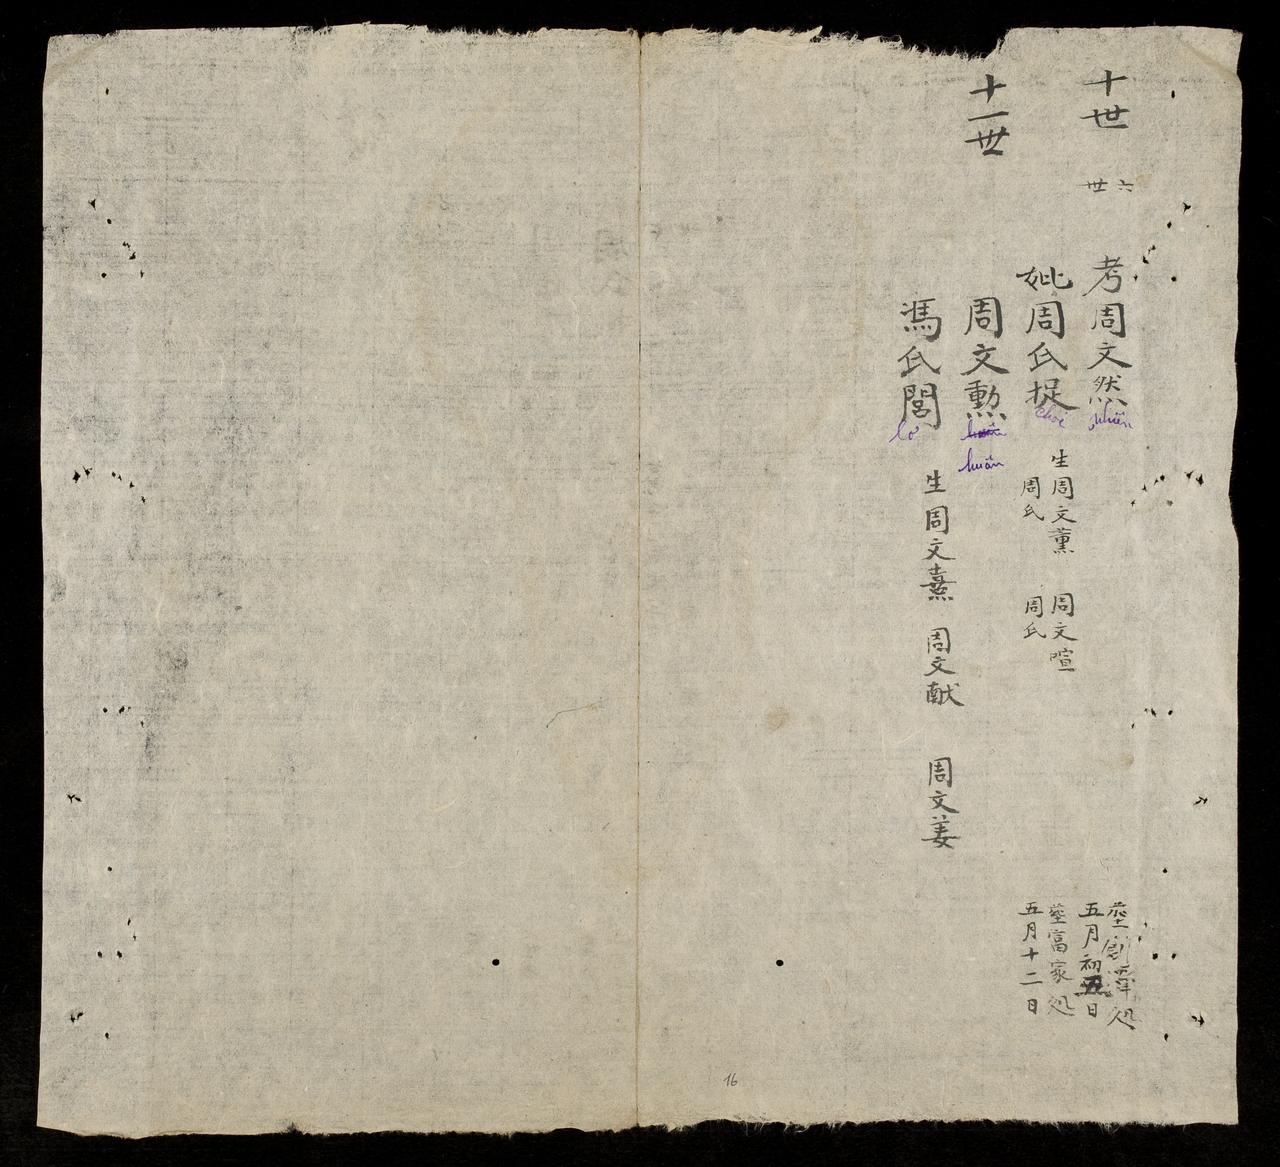 十世
六
世
考周文然
nhiên
𦵏
処
五月初五日
妣周氏捉
生周文薫 周文喧
周氏 周氏
𦵏富家処
五月十二日
十一世
周文勲
huân
馮氏閭
lơ
生周文熹 周文献 周文姜
16